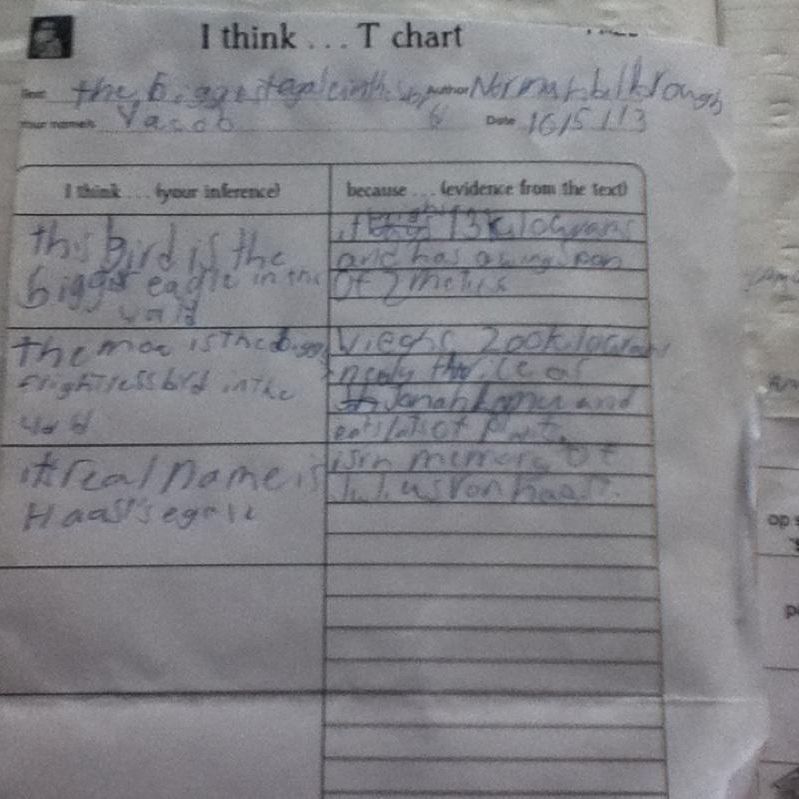 I think ... T chart
Text the biggest eagle in the Author Norman
Your name/s Yacob Date 16/5/13
I think ... (your inference)
because ... (evidence from the text)
this bird is the
biggst eagle in the
world
it 13 kilograms
and has a wing span
of 2 metrs
the moa is the bigg
flightless bird in the
wieghs 200 kilograms
nearly thrice as
Jonah Lomu and
eats lots of
it real name is
Haast's egale
is in memory of
Julius von haast.
op